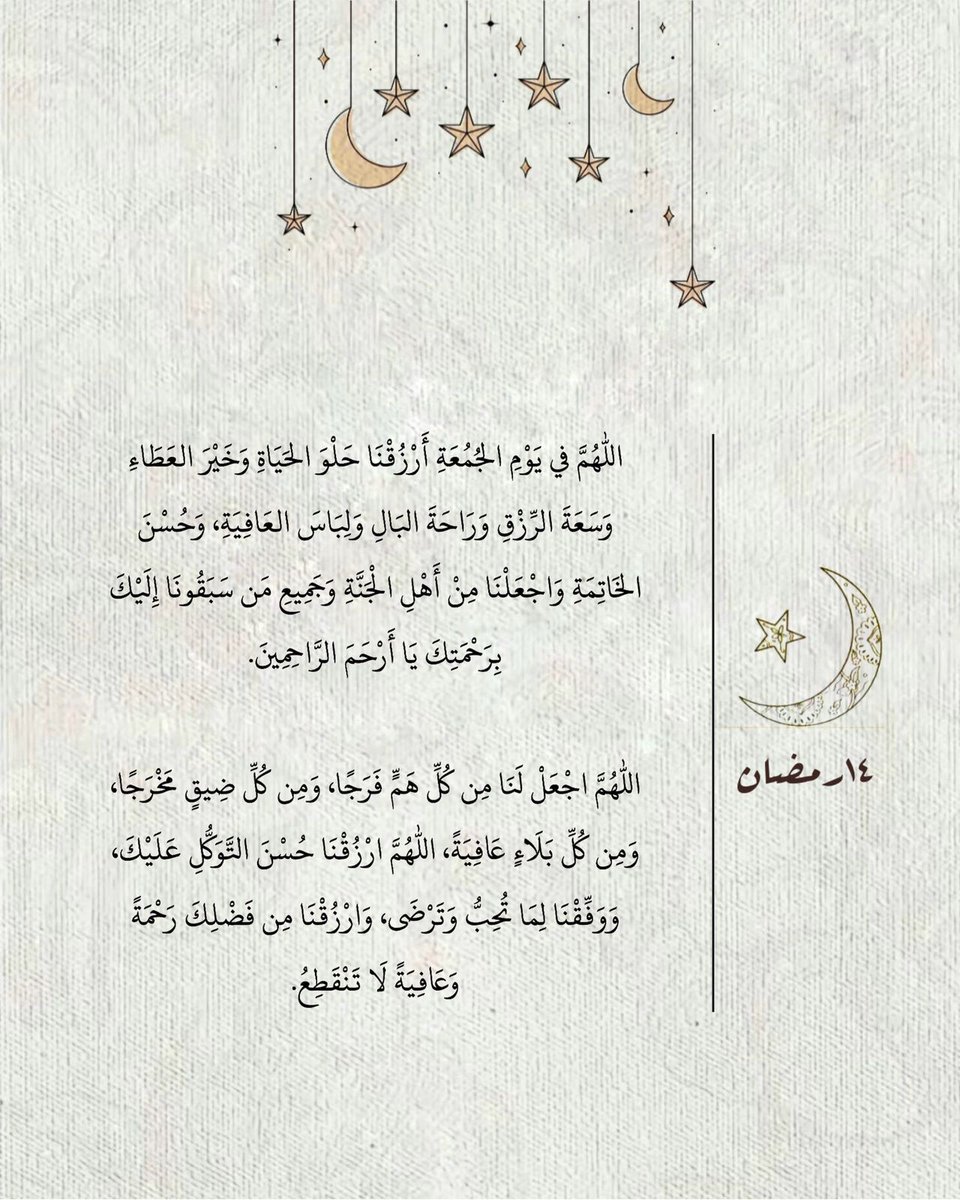 اللّٰهُمَّ في يَوْمِ الجُمُعَةِ أَرْزُقْنَا حَلْوَ الحَيَاةِ وَخَيْرَ العَطَاءِ
وَسَعَةَ الرِّزْقِ وَرَاحَةَ البَالِ وَلِبَاسَ العَافِيَةِ، وَحُسْنَ
الخَاتِمَةِ وَاجْعَلْنَا مِنْ أَهْلِ الْجَنَّةِ وَجَمِيعِ مَن سَبَقُونَا إِلَيْكَ
بِرَحْمَتِكَ يَا أَرْحَمَ الرَّاحِمِينَ.
اللّٰهُمَّ اجْعَلْ لَنَا مِن كُلِّ هَمٍّ فَرَجًا، وَمِن كُلِّ ضِيقٍ مَخْرَجًا،
وَمِن كُلِّ بَلَاءٍ عَافِيَةً، اللّٰهُمَّ ارْزُقْنَا حُسْنَ التَّوَكُّلِ عَلَيْكَ،
وَوَفِّقْنَا لِمَا تُحِبُّ وَتَرْضَى، وَارْزُقْنَا مِن فَضْلِكَ رَحْمَةً
وَعَافِيَةً لَا تَنْقَطِعُ.
١٤رمضان